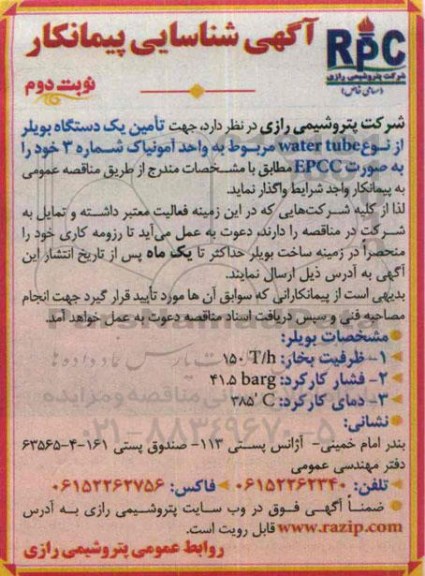 RPC
شرکت پتروشیمی رازی
(سهامی خاص)
آگهی شناسایی پیمانکار
نوبت دوم
شرکت پتروشیمی رازی در نظر دارد، جهت تأمین یک دستگاه بویلر
از نوع water tube مربوط به واحد آمونیاک شماره ۳ خود را
به صورت EPCC مطابق با مشخصات مندرج از طریق مناقصه عمومی
به پیمانکار واجد شرایط واگذار نماید.
لذا از کلیه شرکت‌هایی که در این زمینه فعالیت معتبر داشته و تمایل به
شرکت در مناقصه را دارند، دعوت به عمل می‌آید تا رزومه کاری خود را
منحصراً در زمینه ساخت بویلر حداکثر تا یک ماه پس از تاریخ انتشار این
آگهی به آدرس ذیل ارسال نمایند.
بدیهی است از پیمانکارانی که سوابق آن ها مورد تأیید قرار گیرد جهت انجام
مصاحبه فنی و سپس دریافت اسناد مناقصه دعوت به عمل خواهد آمد.
مشخصات بویلر:
۱- ظرفیت بخار: ۱۵۰ T/h
۲- فشار کارکرد: ۴۱.۵ barg
۳- دمای کارکرد: ۳۸۵° C
نشانی:
بندر امام خمینی- آژانس پستی ۱۱۳- صندوق پستی ۱۶۱-۴-۶۳۵۶۵
دفتر مهندسی عمومی
تلفن: ۰۶۱۵۲۲۶۲۳۴۰ فاکس: ۰۶۱۵۲۲۶۲۷۵۶
ضمناً آگهی فوق در وب سایت پتروشیمی رازی به آدرس
www.razip.com قابل رویت است.
روابط عمومی پتروشیمی رازی
۰۲۱-۸۸۳۴۹۶۷۰-۵